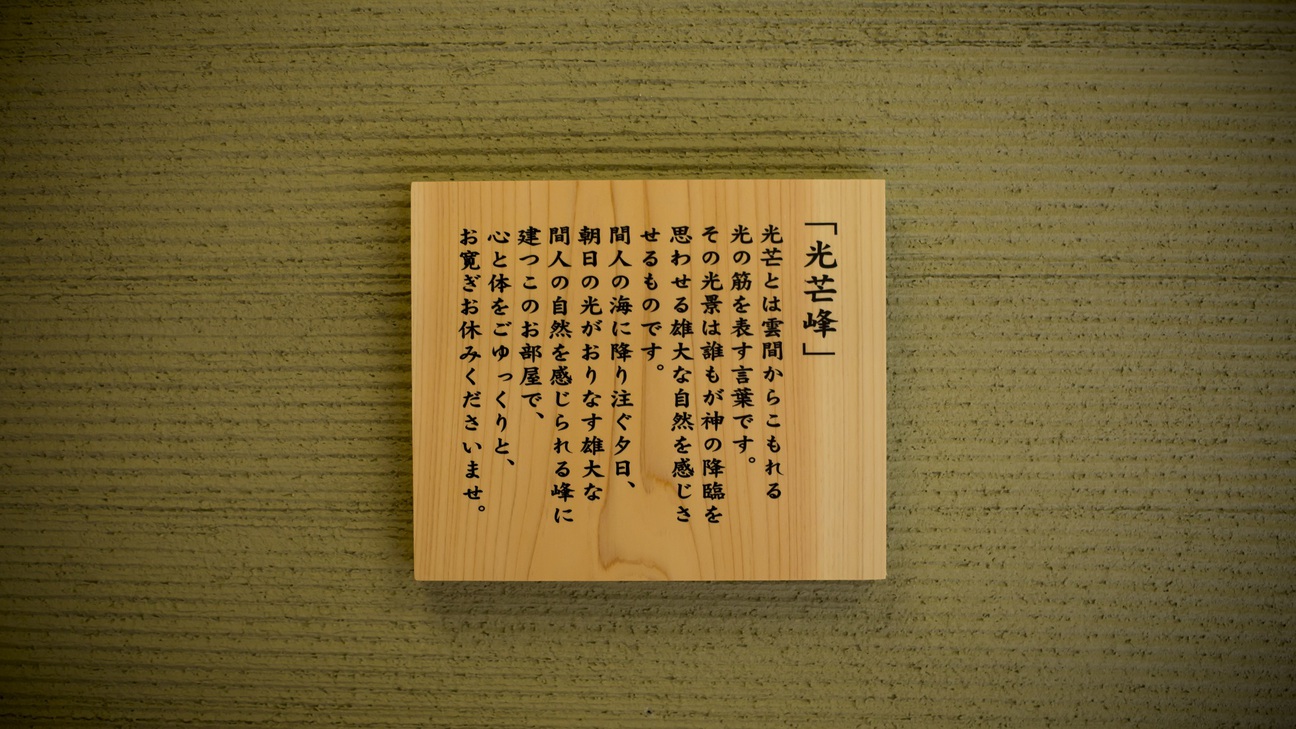 「光芒峰」
光芒とは雲間からこもれる
光の筋を表す言葉です。
その光景は誰もが神の降臨を
思わせる雄大な自然を感じさ
せるものです。
間人の海に降り注ぐ夕日、
朝日の光がおりなす雄大な
間人の自然を感じられる峰に
建つこのお部屋で、
心と体をごゆっくりと、
お寛ぎお休みくださいませ。